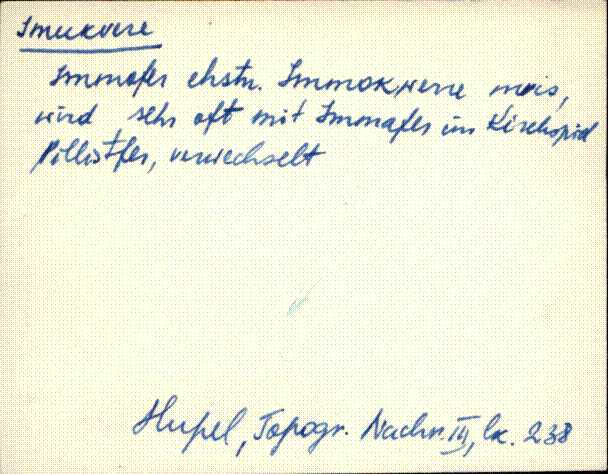 Imukvere
Immafer ehstn. Immokwerre mois,
wird sehr oft mit Immafer im Kirchspiel
Pillistfer, verwechselt
Hupel, Topogr. Nachr. III, lk. 238